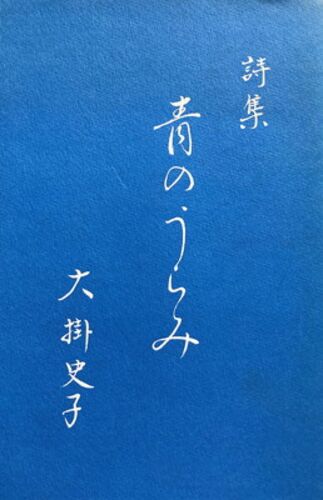 詩集
青のうらみ
大掛史子